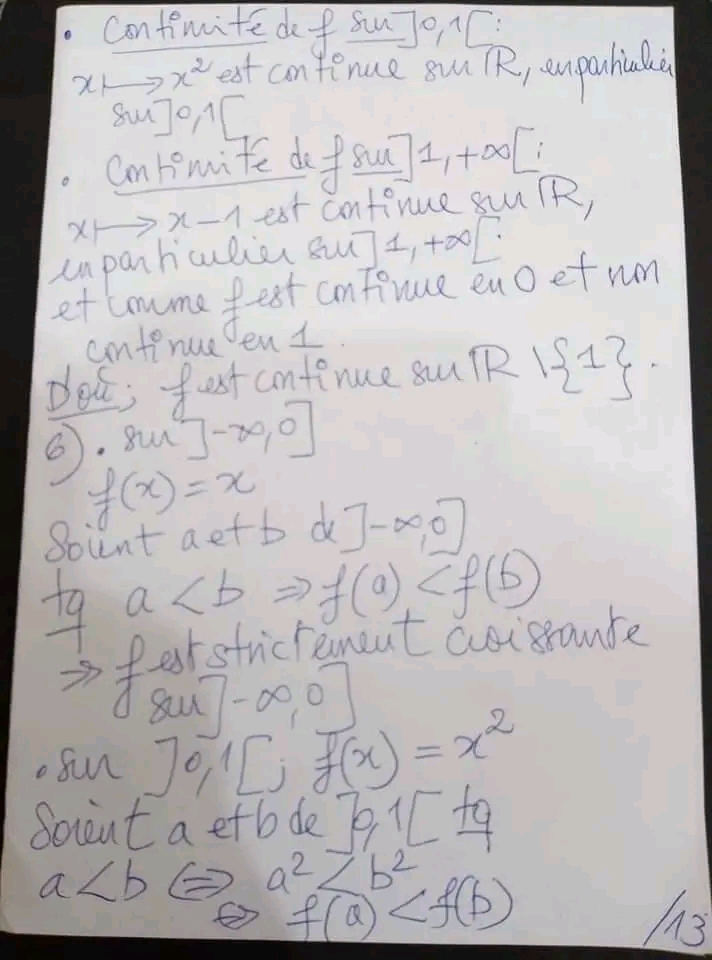 • Continuité de f sur ]0,1[:
x ⟼ x² est continue sur ℝ, en particulier
sur ]0,1[
• Continuité de f sur ]1,+∞[:
x ⟼ x-1 est continue sur ℝ,
en particulier sur ]1,+∞[.
et comme f est continue en 0 et non
continue en 1.
D'où; f est continue sur ℝ \{1}.
6) • sur ]-∞,0]
f(x) = x
Soient a et b de ]-∞,0]
tq a < b ⇒ f(a) < f(b)
⇒ f est strictement croissante
sur ]-∞,0]
• sur ]0,1[; f(x) = x²
Soient a et b de ]0,1[ tq
a < b ⇔ a² < b²
⇔ f(a) < f(b)
/13